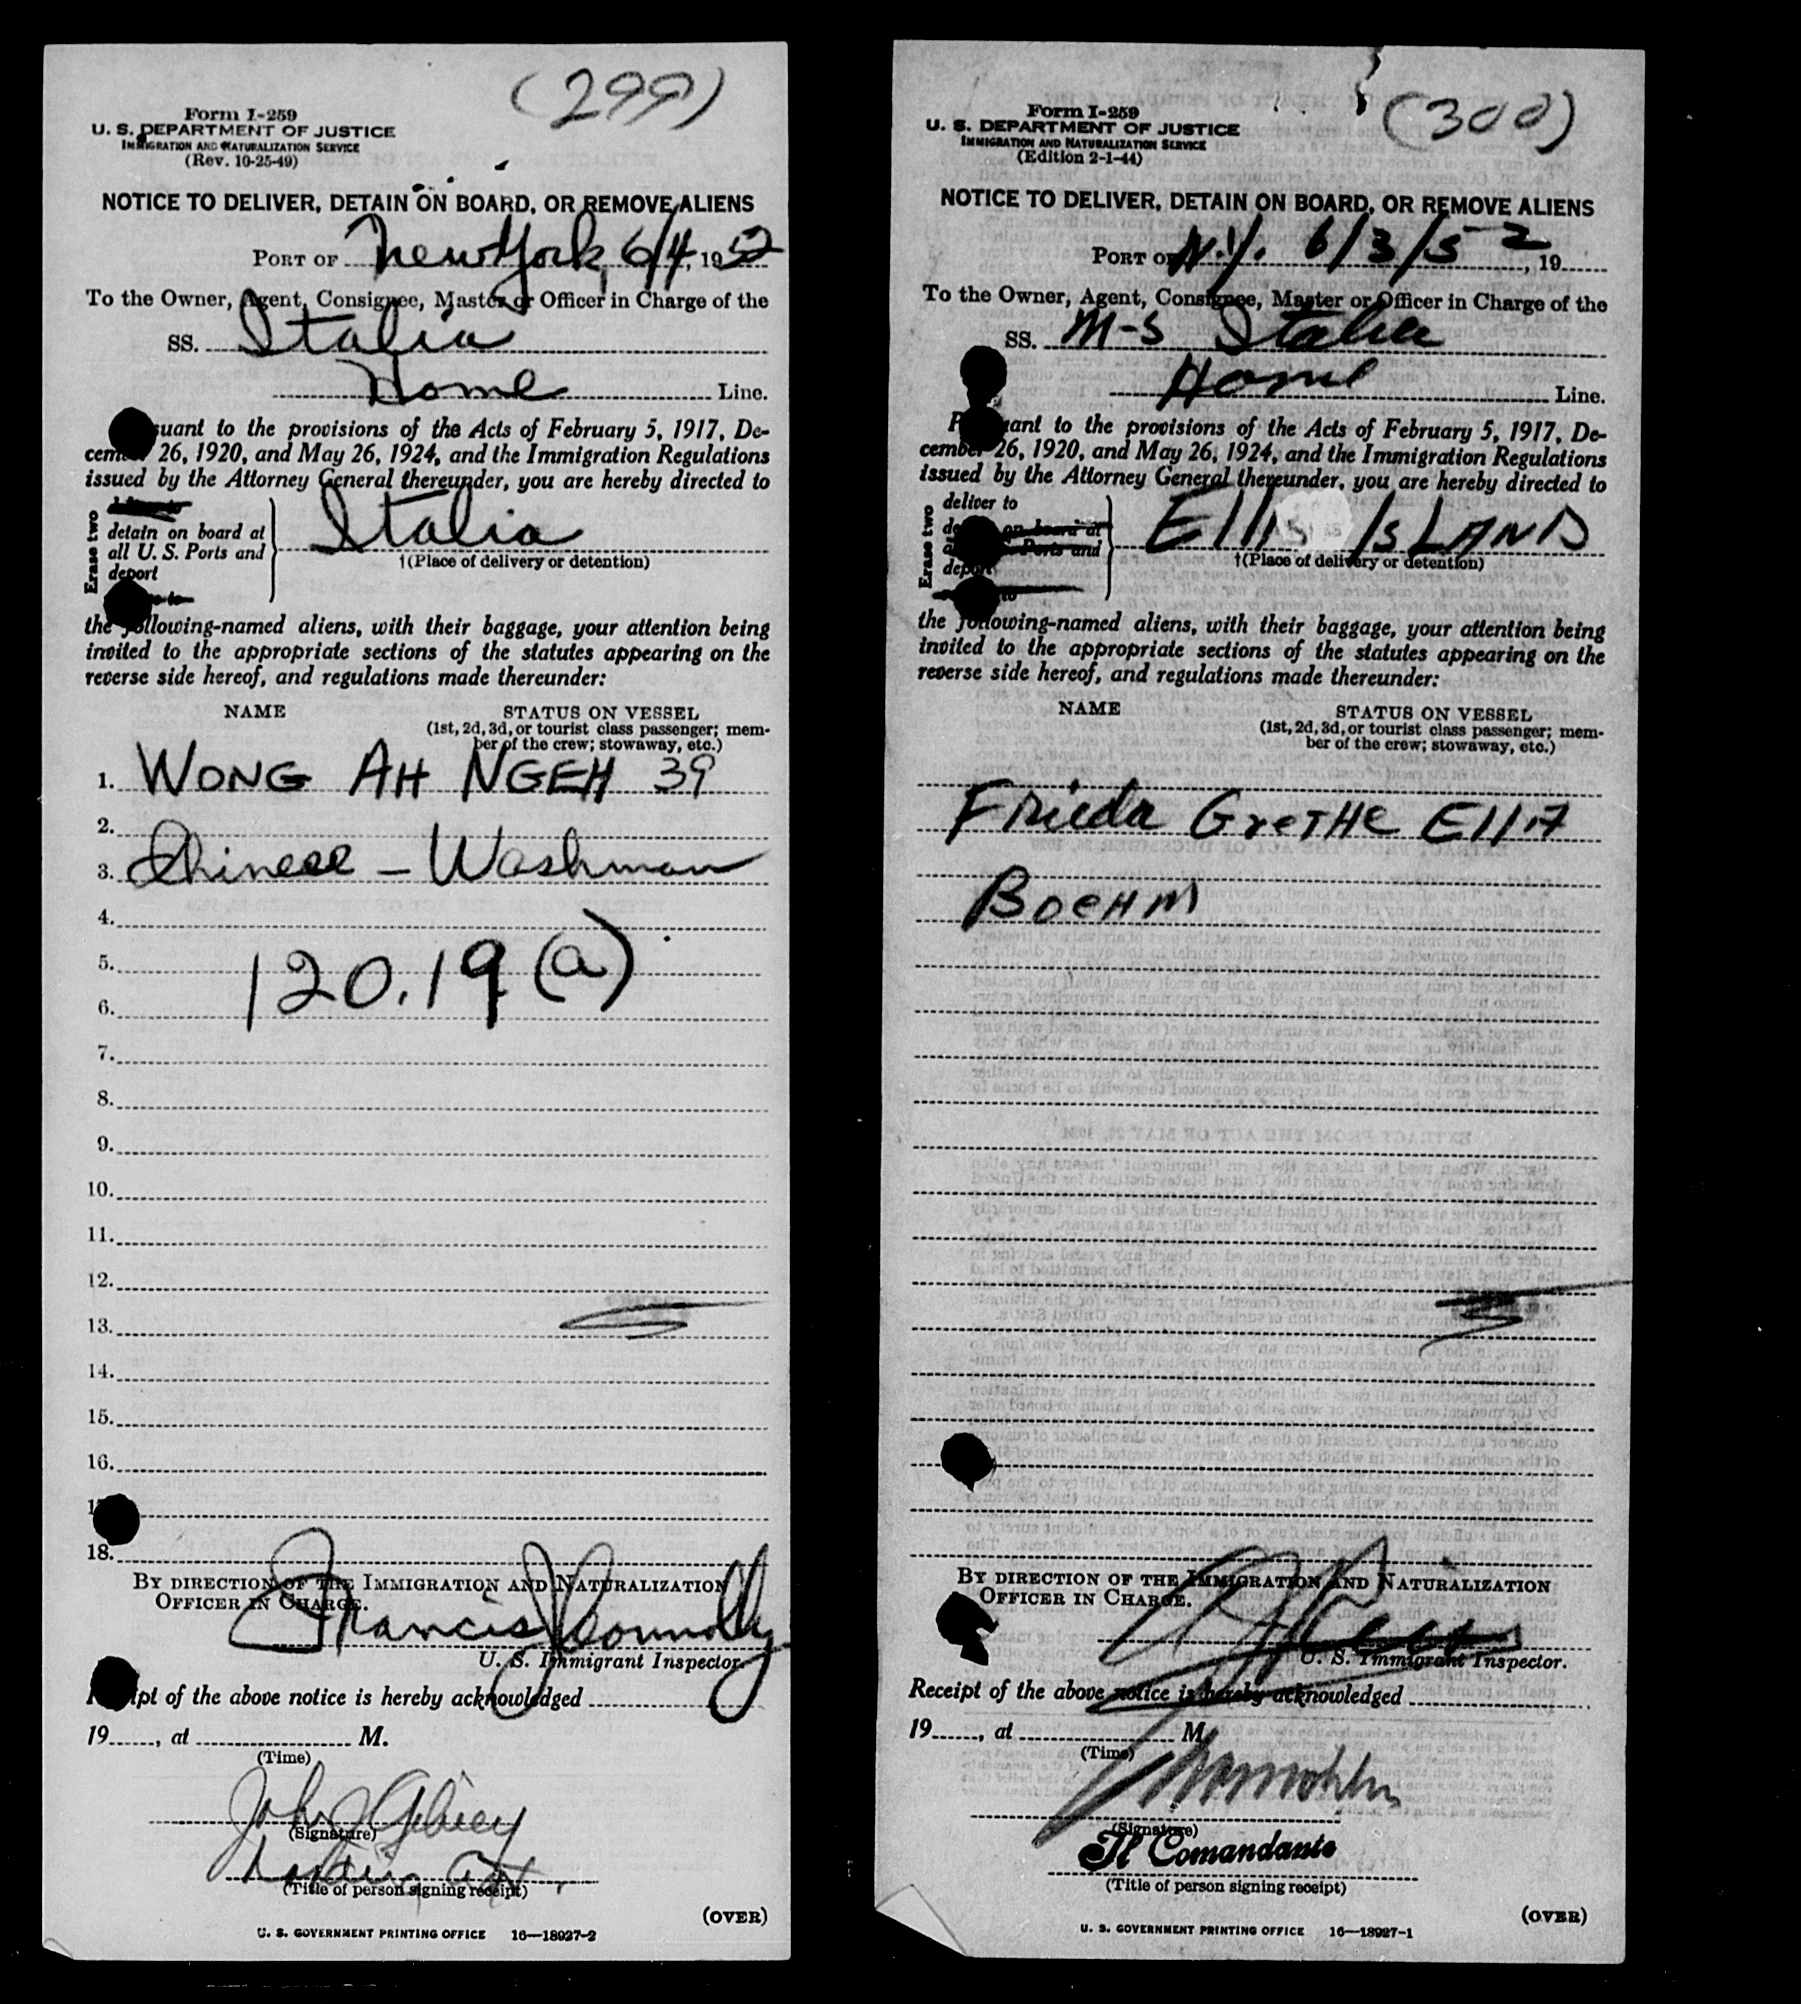 (299)
Form I-259
U. S. DEPARTMENT OF JUSTICE
IMMIGRATION AND NATURALIZATION SERVICE
(Rev. 10-25-49)
NOTICE TO DELIVER, DETAIN ON BOARD, OR REMOVE ALIENS
PORT OF New York, 6/4, 1952
To the Owner, Agent, Consignee, Master or Officer in Charge of the
SS. Italia
Home Line.
suant to the provisions of the Acts of February 5, 1917, De-
cember 26, 1920, and May 26, 1924, and the Immigration Regulations
issued by the Attorney General thereunder, you are hereby directed to
Erase two
detain on board at
all U. S. Ports and
deport
Italia
†(Place of delivery or detention)
the following-named aliens, with their baggage, your attention being
invited to the appropriate sections of the statutes appearing on the
reverse side hereof, and regulations made thereunder:
NAME STATUS ON VESSEL
(1st, 2d, 3d, or tourist class passenger; mem-
ber of the crew; stowaway, etc.)
1. WONG AH NGEH 39
2.
3. Chinese - Washman
4.
5. 120.19 (a)
6.
7.
8.
9.
10.
11.
12.
13.
14.
15.
16.
17
18.
BY DIRECTION OF THE IMMIGRATION AND NATURALIZATION
OFFICER IN CHARGE.
Francis J Connolly
U. S. Immigrant Inspector.
Receipt of the above notice is hereby acknowledged
19, at M.
(Time)
John J
(Signature)
(Title of person signing receipt)
(OVER)
U. S. GOVERNMENT PRINTING OFFICE 16—18927-2
(300)
Form I-259
U. S. DEPARTMENT OF JUSTICE
IMMIGRATION AND NATURALIZATION SERVICE
(Edition 2-1-44)
NOTICE TO DELIVER, DETAIN ON BOARD, OR REMOVE ALIENS
PORT OF N.Y. 6/3/52, 19
To the Owner, Agent, Consignee, Master or Officer in Charge of the
SS. M-S Italia
Home Line.
Pursuant to the provisions of the Acts of February 5, 1917, De-
cember 26, 1920, and May 26, 1924, and the Immigration Regulations
issued by the Attorney General thereunder, you are hereby directed to
Erase two
deliver to
on board at
Ports and
deport
to
Ellis ISLAND
†(Place of delivery or detention)
the following-named aliens, with their baggage, your attention being
invited to the appropriate sections of the statutes appearing on the
reverse side hereof, and regulations made thereunder:
NAME STATUS ON VESSEL
(1st, 2d, 3d, or tourist class passenger; mem-
ber of the crew; stowaway, etc.)
Frieda GreTHe Ella
BoeHM
BY DIRECTION OF THE IMMIGRATION AND NATURALIZATION
OFFICER IN CHARGE.
U. S. Immigrant Inspector.
Receipt of the above notice is hereby acknowledged
19, at M.
(Time)
(Signature)
Il Comandante
(Title of person signing receipt)
(OVER)
U. S. GOVERNMENT PRINTING OFFICE 16—18927-1